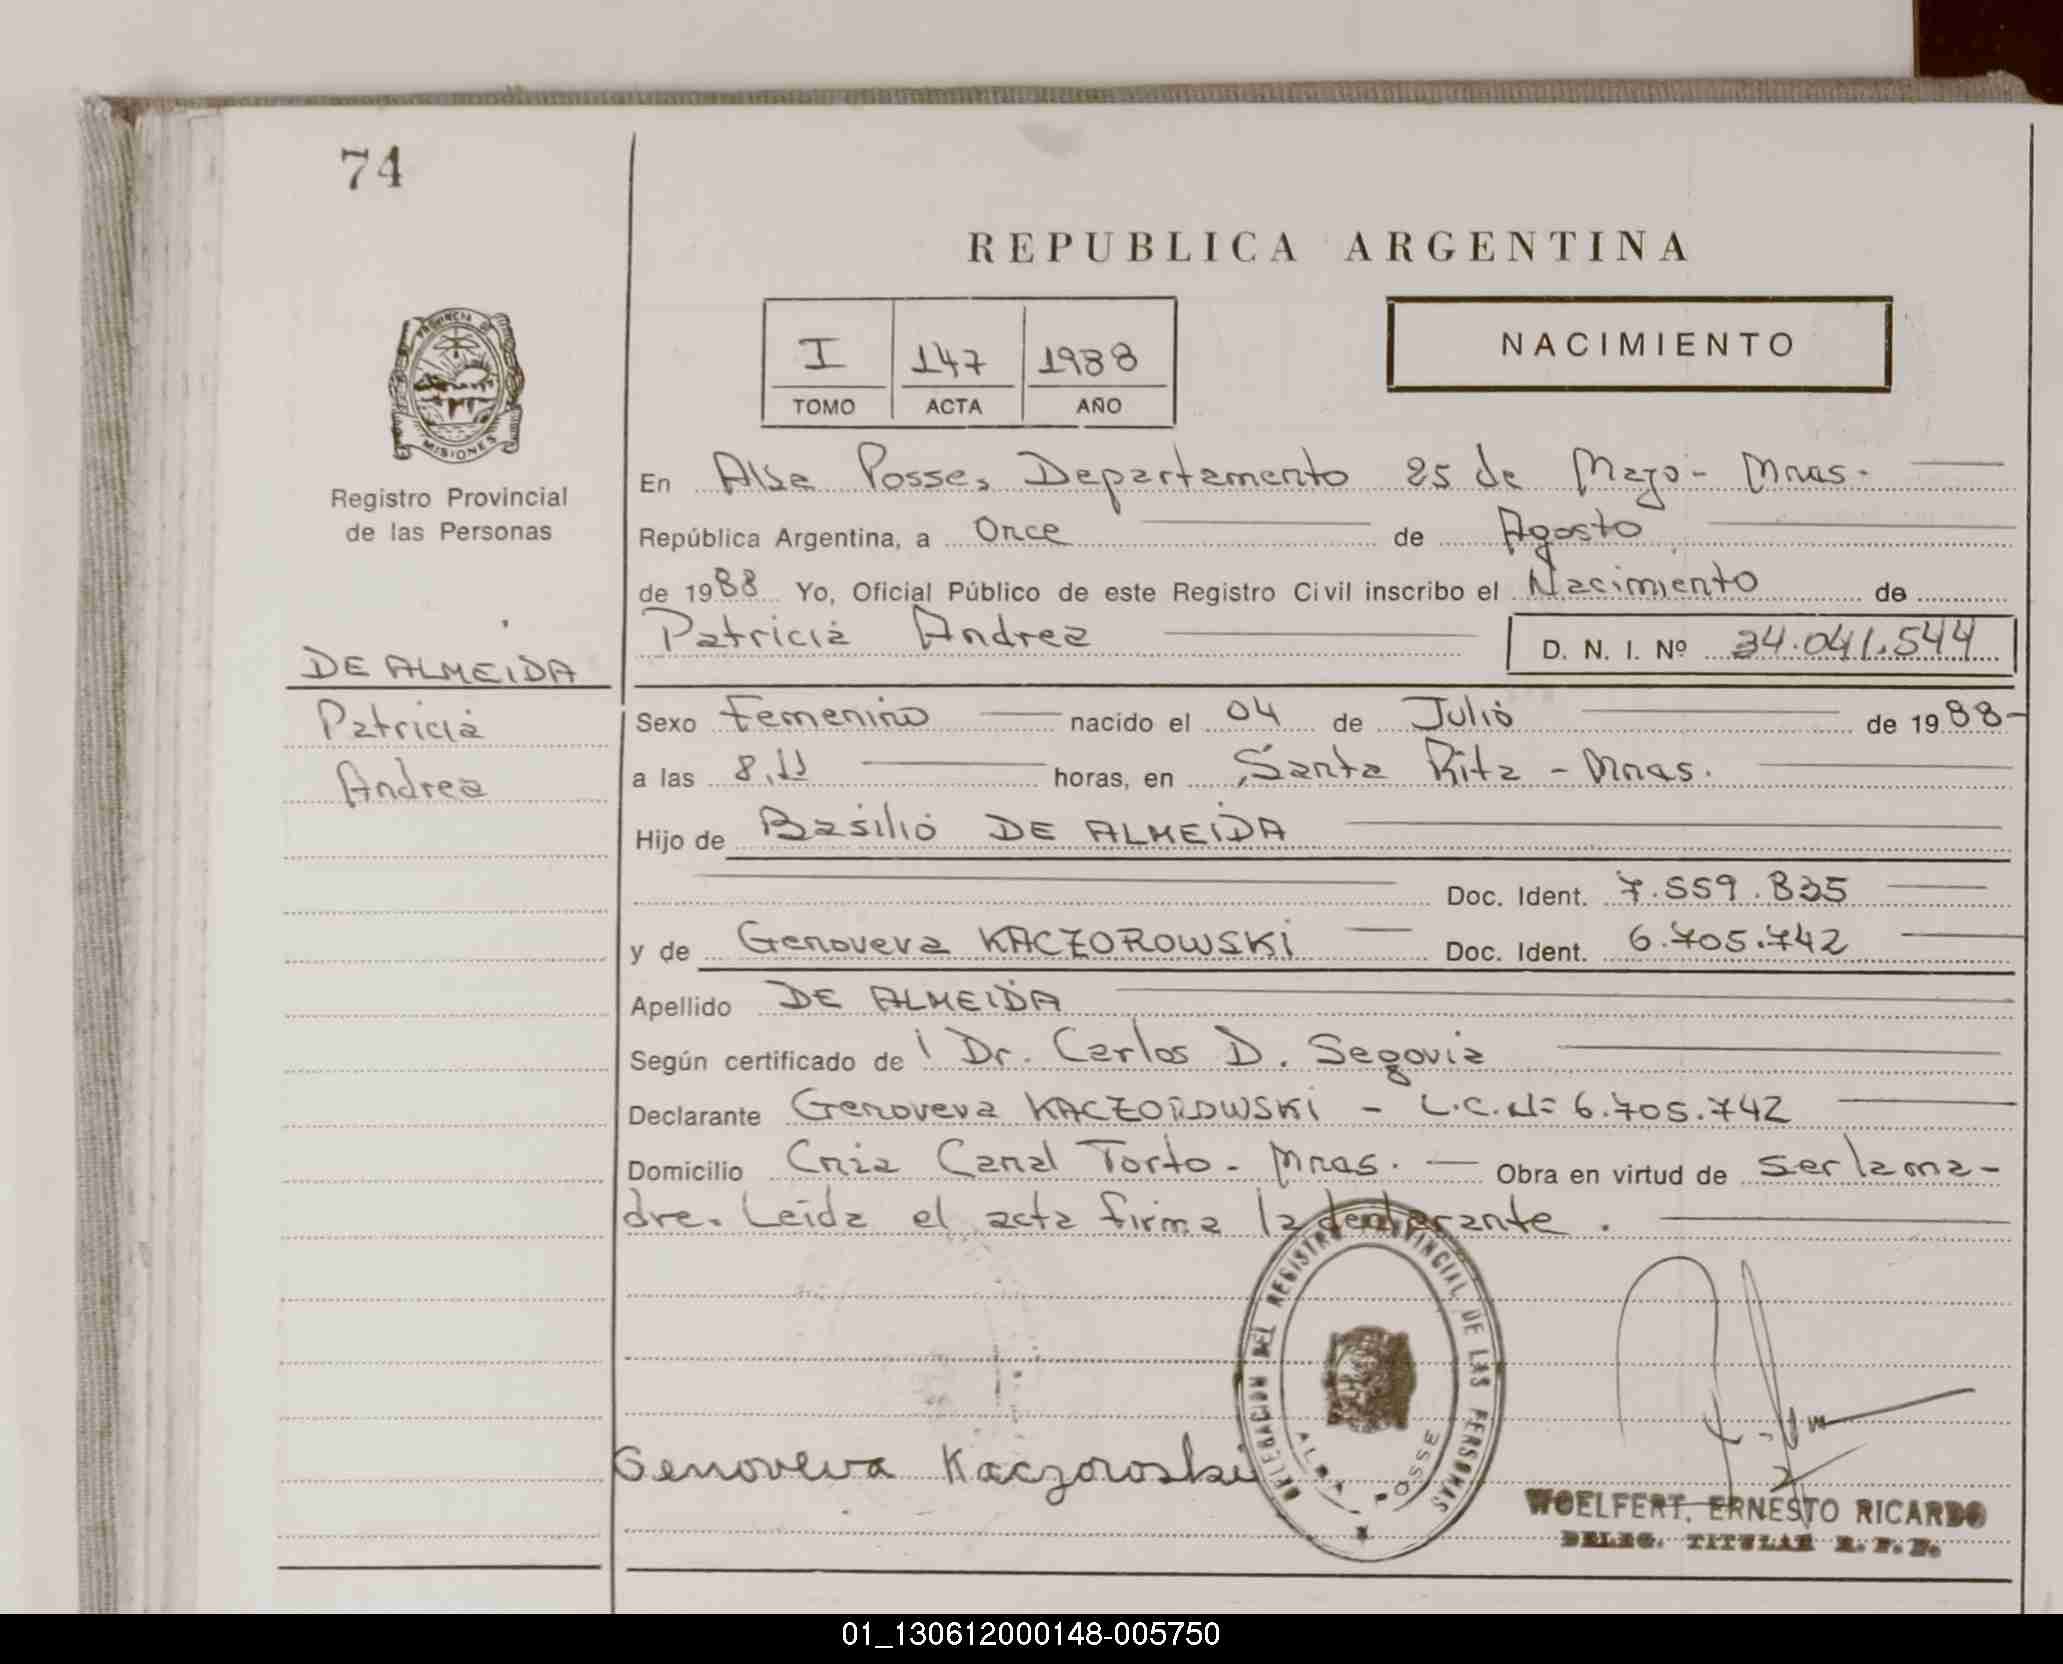 74
REPUBLICA ARGENTINA
PROVINCIA DE
MISIONES
Registro Provincial
de las Personas
I 147 1988
TOMO ACTA AÑO
NACIMIENTO
En Alba Posse, Departamento 25 de Mayo - Mnes.
República Argentina, a Once de Agosto
de 1988 Yo, Oficial Público de este Registro Civil inscribo el Nacimiento de
Patricia Andrea D. N. I. Nº 34.041.544
DE ALMEIDA
Patricia
Andrea
Sexo Femenino nacido el 04 de Julio de 1988-
a las 8,11 horas, en Santa Rita - Mnes.
Hijo de Basilio DE ALMEIDA
Doc. Ident. 7.559.835
y de Genoveva KACZOROWSKI Doc. Ident. 6.705.742
Apellido DE ALMEIDA
Según certificado de Dr. Carlos D. Segovia
Declarante Genoveva KACZOROWSKI - L.C. Nº 6.705.742
Domicilio Cnia Canal Torto - Mnes. Obra en virtud de ser la ma-
dre. Leida el acta firma la declarante.
DELEGACION DEL REGISTRO PROVINCIAL DE LAS PERSONAS
ALBA POSSE
Genoveva Kaczoroski
WOELFERT, ERNESTO RICARDO
DELEG. TITULAR R. P. P.
01_130612000148-005750